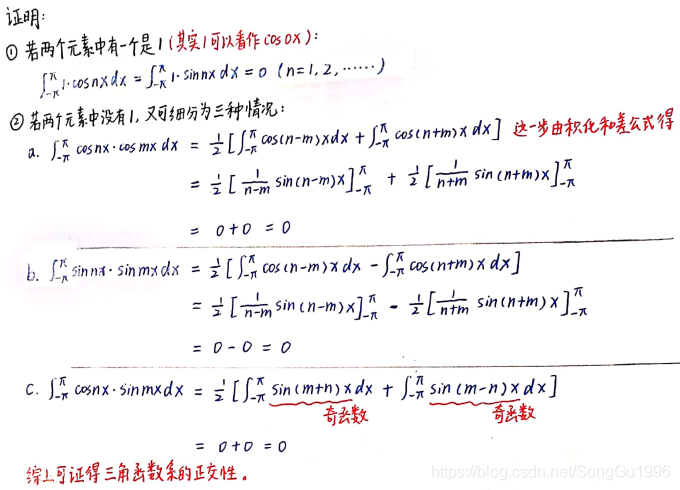 证明:
① 若两个元素中有一个是1 (其实1可以看作cos0x):
∫_{-π}^{π} 1·cosnxdx = ∫_{-π}^{π} 1·sinnxdx = 0 (n=1, 2, ……)
② 若两个元素中没有1, 又可细分为三种情况:
a. ∫_{-π}^{π} cosnx·cosmxdx = 1/2[∫_{-π}^{π} cos(n-m)xdx + ∫_{-π}^{π} cos(n+m)xdx] 这一步由积化和差公式得
= 1/2[1/(n-m) sin(n-m)x]_{-π}^{π} + 1/2[1/(n+m) sin(n+m)x]_{-π}^{π}
= 0+0 = 0
b. ∫_{-π}^{π} sinnx·sinmxdx = 1/2[∫_{-π}^{π} cos(n-m)xdx - ∫_{-π}^{π} cos(n+m)xdx]
= 1/2[1/(n-m) sin(n-m)x]_{-π}^{π} - 1/2[1/(n+m) sin(n+m)x]_{-π}^{π}
= 0-0 = 0
c. ∫_{-π}^{π} cosnx·sinmxdx = 1/2[∫_{-π}^{π} sin(m+n)xdx + ∫_{-π}^{π} sin(m-n)xdx]
奇函数 奇函数
= 0+0 = 0
综上可证得三角函数系的正交性。
https://blog.csdn.net/SongGu1996